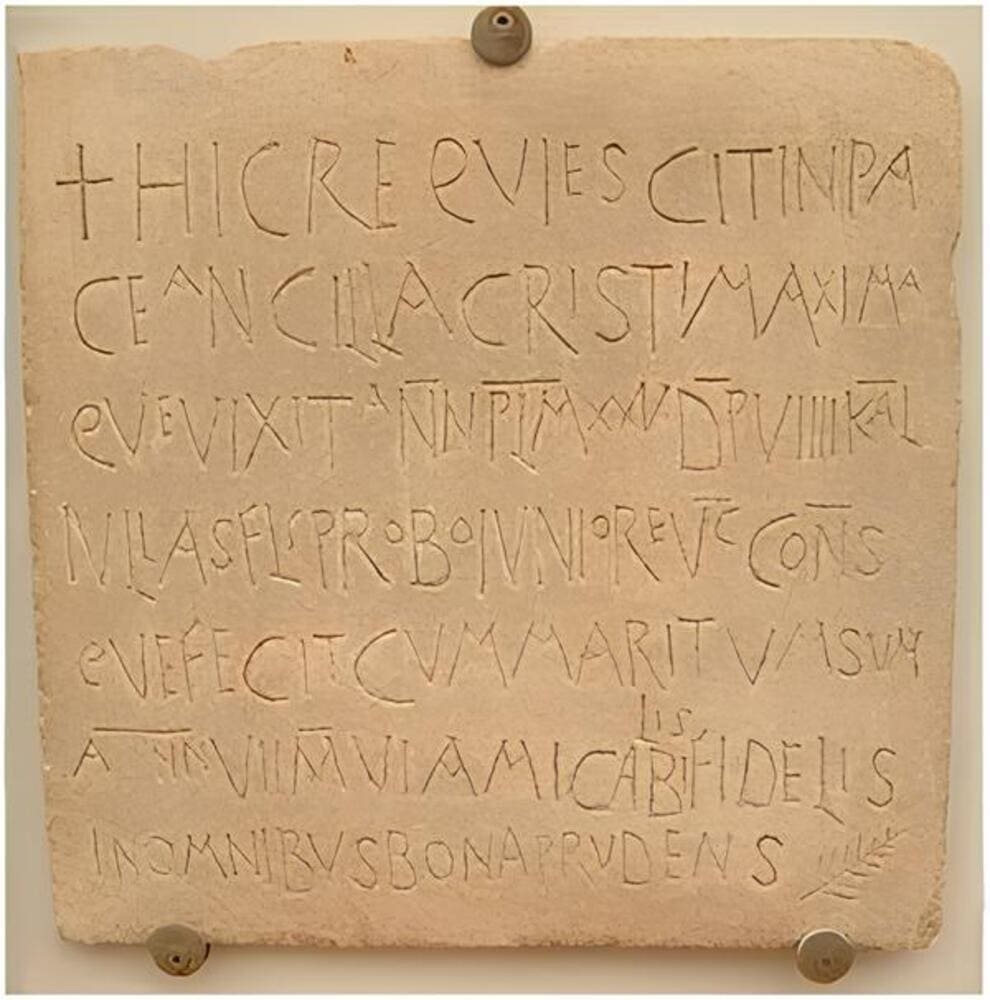 + HIC REQVIESCIT IN PA
CE ANCILLA CRISTI MAXIMA
QVE VIXIT ANN PLM XXV DP VIIII KAL
IVLIAS FLS PROBO IVNIORE VC CONS
QVE FECIT CVM MARITVM SVM
ANN VII M VI AMICABILIS FIDELIS
IN OMNIBVS BONA PRVDENS